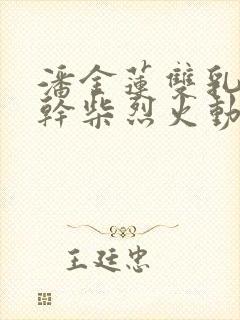 潘金蓮雙乳
幹柴烈火動
王廷忠